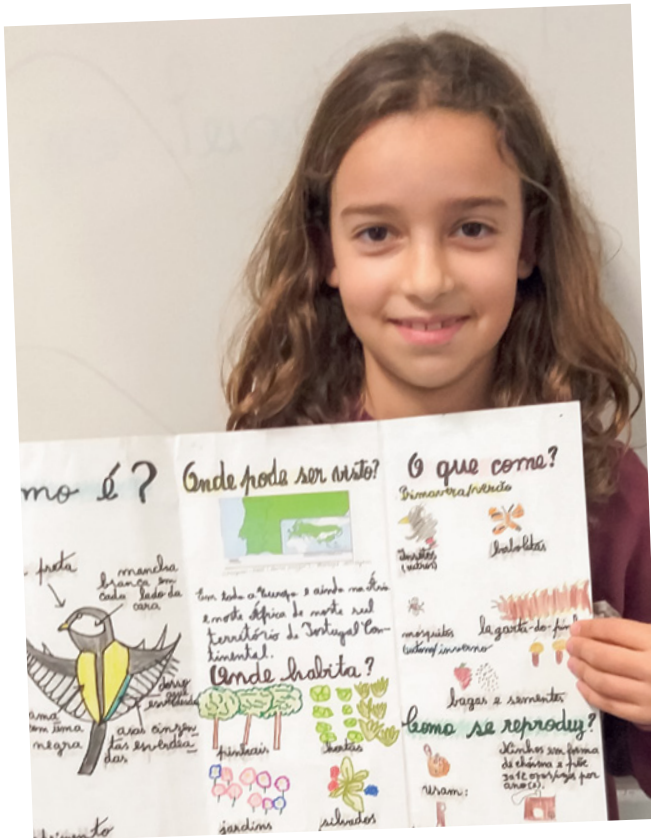 mo é?
preta
mancha
branca em
cada lado da
cara
dorso
esverdeado
ama
com uma
negra
asas cinzen-
tas esverdea-
das
Onde pode ser visto?
Em toda a Europa e ainda na Ásia
e norte África de norte sul
território de Portugal Con-
tinental.
Onde habita?
pinhais
hortas
jardins
silvados
O que come?
Primavera/verão
Insetos
(outros)
borboletas
mosquitos
lagarta-do-pinh
outono/inverno
bagas e sementes
Como se reproduz?
Ninhos em forma
de
ano(s).
usam: